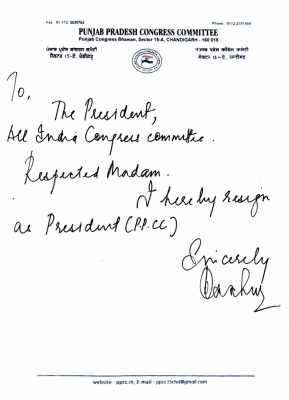 Fax : 91-172-5039762
Phone : 0172-2781460
PUNJAB PRADESH CONGRESS COMMITTEE
Punjab Congress Bhawan, Sector 15-A, CHANDIGARH - 160 015
ਪੰਜਾਬ ਪ੍ਰਦੇਸ਼ ਕਾਂਗਰਸ ਕਮੇਟੀ
ਸੈਕਟਰ 15-ਏ, ਚੰਡੀਗੜ੍ਹ
To,
The President,
All India Congress committee.
Respected Madam.
I hereby resign
as President (P.P.CC)
Sincerely
website : ppcc.in, E-mail : ppcc15chd@gmail.com